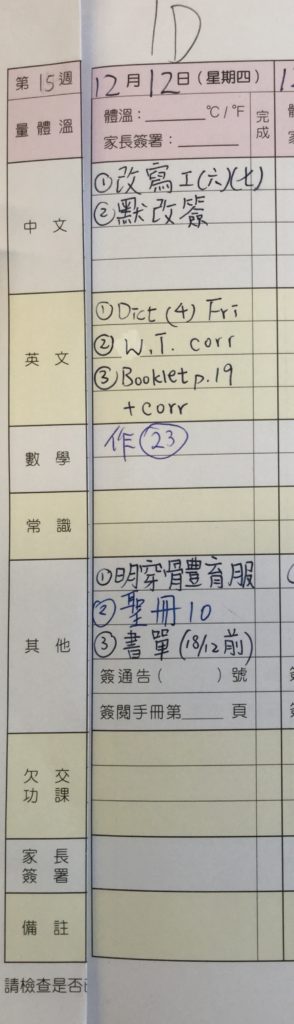 1D
第15週 12月12日(星期四)
量體溫 體溫:______℃/℉ 完成
家長簽署:______
中文 ①改寫工(六)(七)
②默改簽
英文 ①Dict (4) Fri
② W.T. corr
③Booklet p.19
+ corr
數學 作㉓
常識
其他 ①明穿骨體育服
②聖冊10
③書單(18/12前)
簽通告( )號
簽閱手冊第____頁
欠交功課
家長簽署
備註
請檢查是否